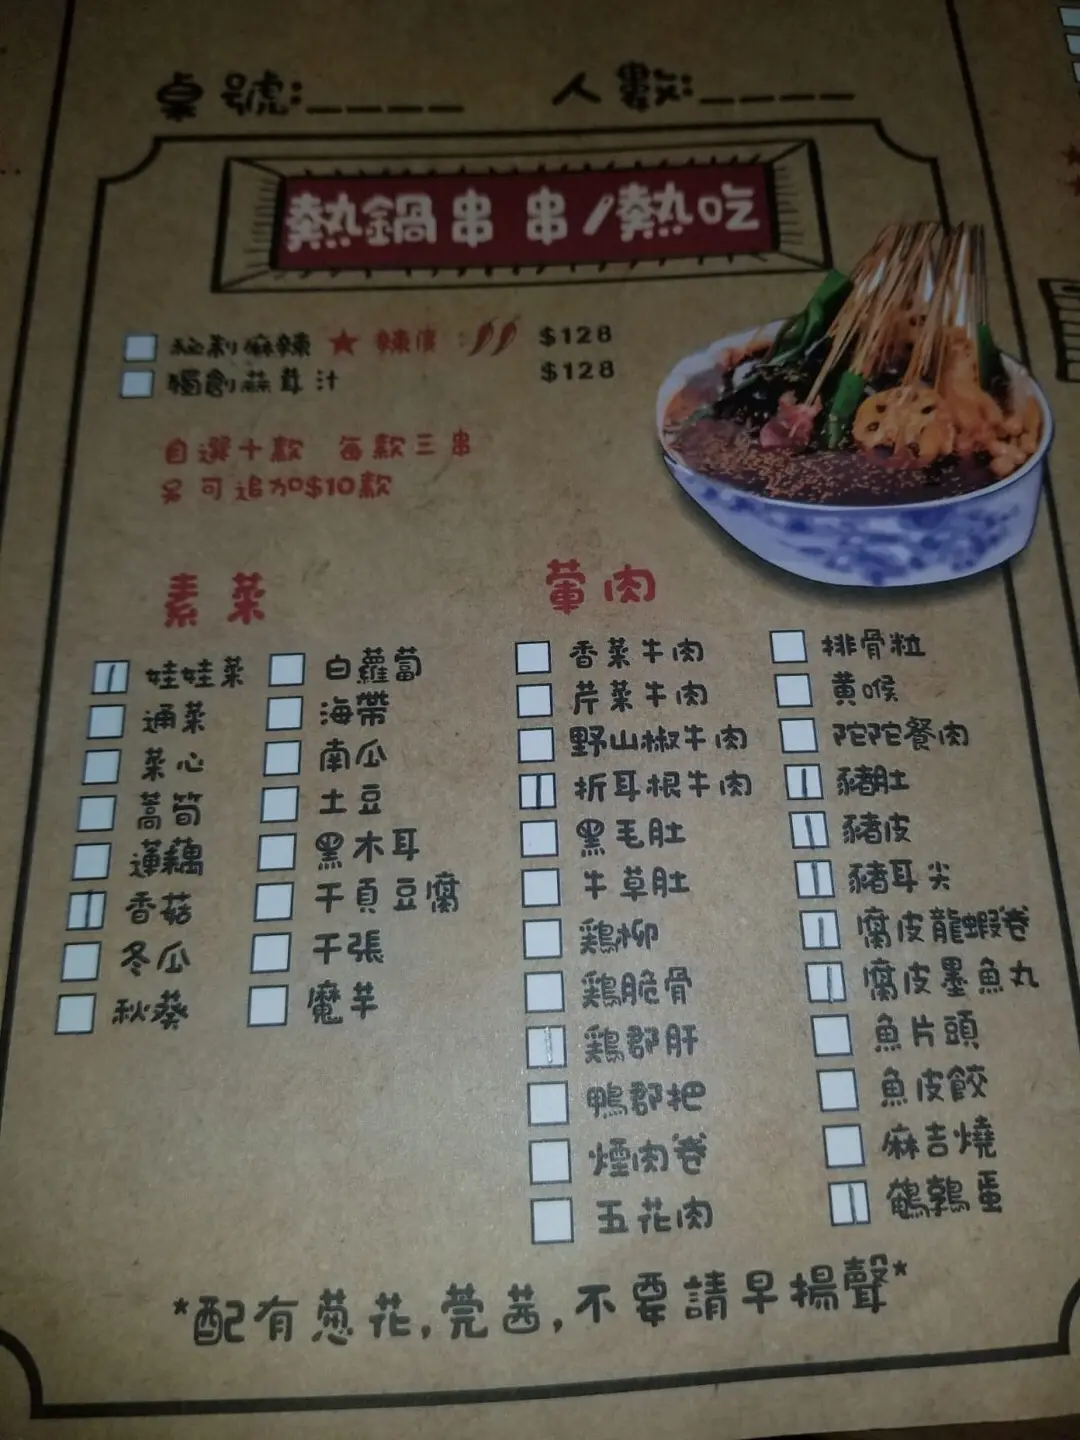 桌號:____ 人數:____
熱鍋串串/熱吃
秘制麻辣 ★ 辣度: $128
獨創蒜茸汁 $128
自選十款 每款三串
另可追加$10款
素菜
娃娃菜
通菜
菜心
萵筍
蓮藕
香菇
冬瓜
秋葵
白蘿蔔
海帶
南瓜
土豆
黑木耳
千頁豆腐
千張
魔芋
葷肉
香菜牛肉
芹菜牛肉
野山椒牛肉
折耳根牛肉
黑毛肚
牛草肚
鷄柳
鷄脆骨
鷄郡肝
鴨郡把
煙肉卷
五花肉
排骨粒
黄喉
陀陀餐肉
豬肚
豬皮
豬耳尖
腐皮龍蝦卷
腐皮墨魚丸
魚片頭
魚皮餃
麻吉燒
鵪鶉蛋
*配有葱花,莞茜,不要請早揚聲*